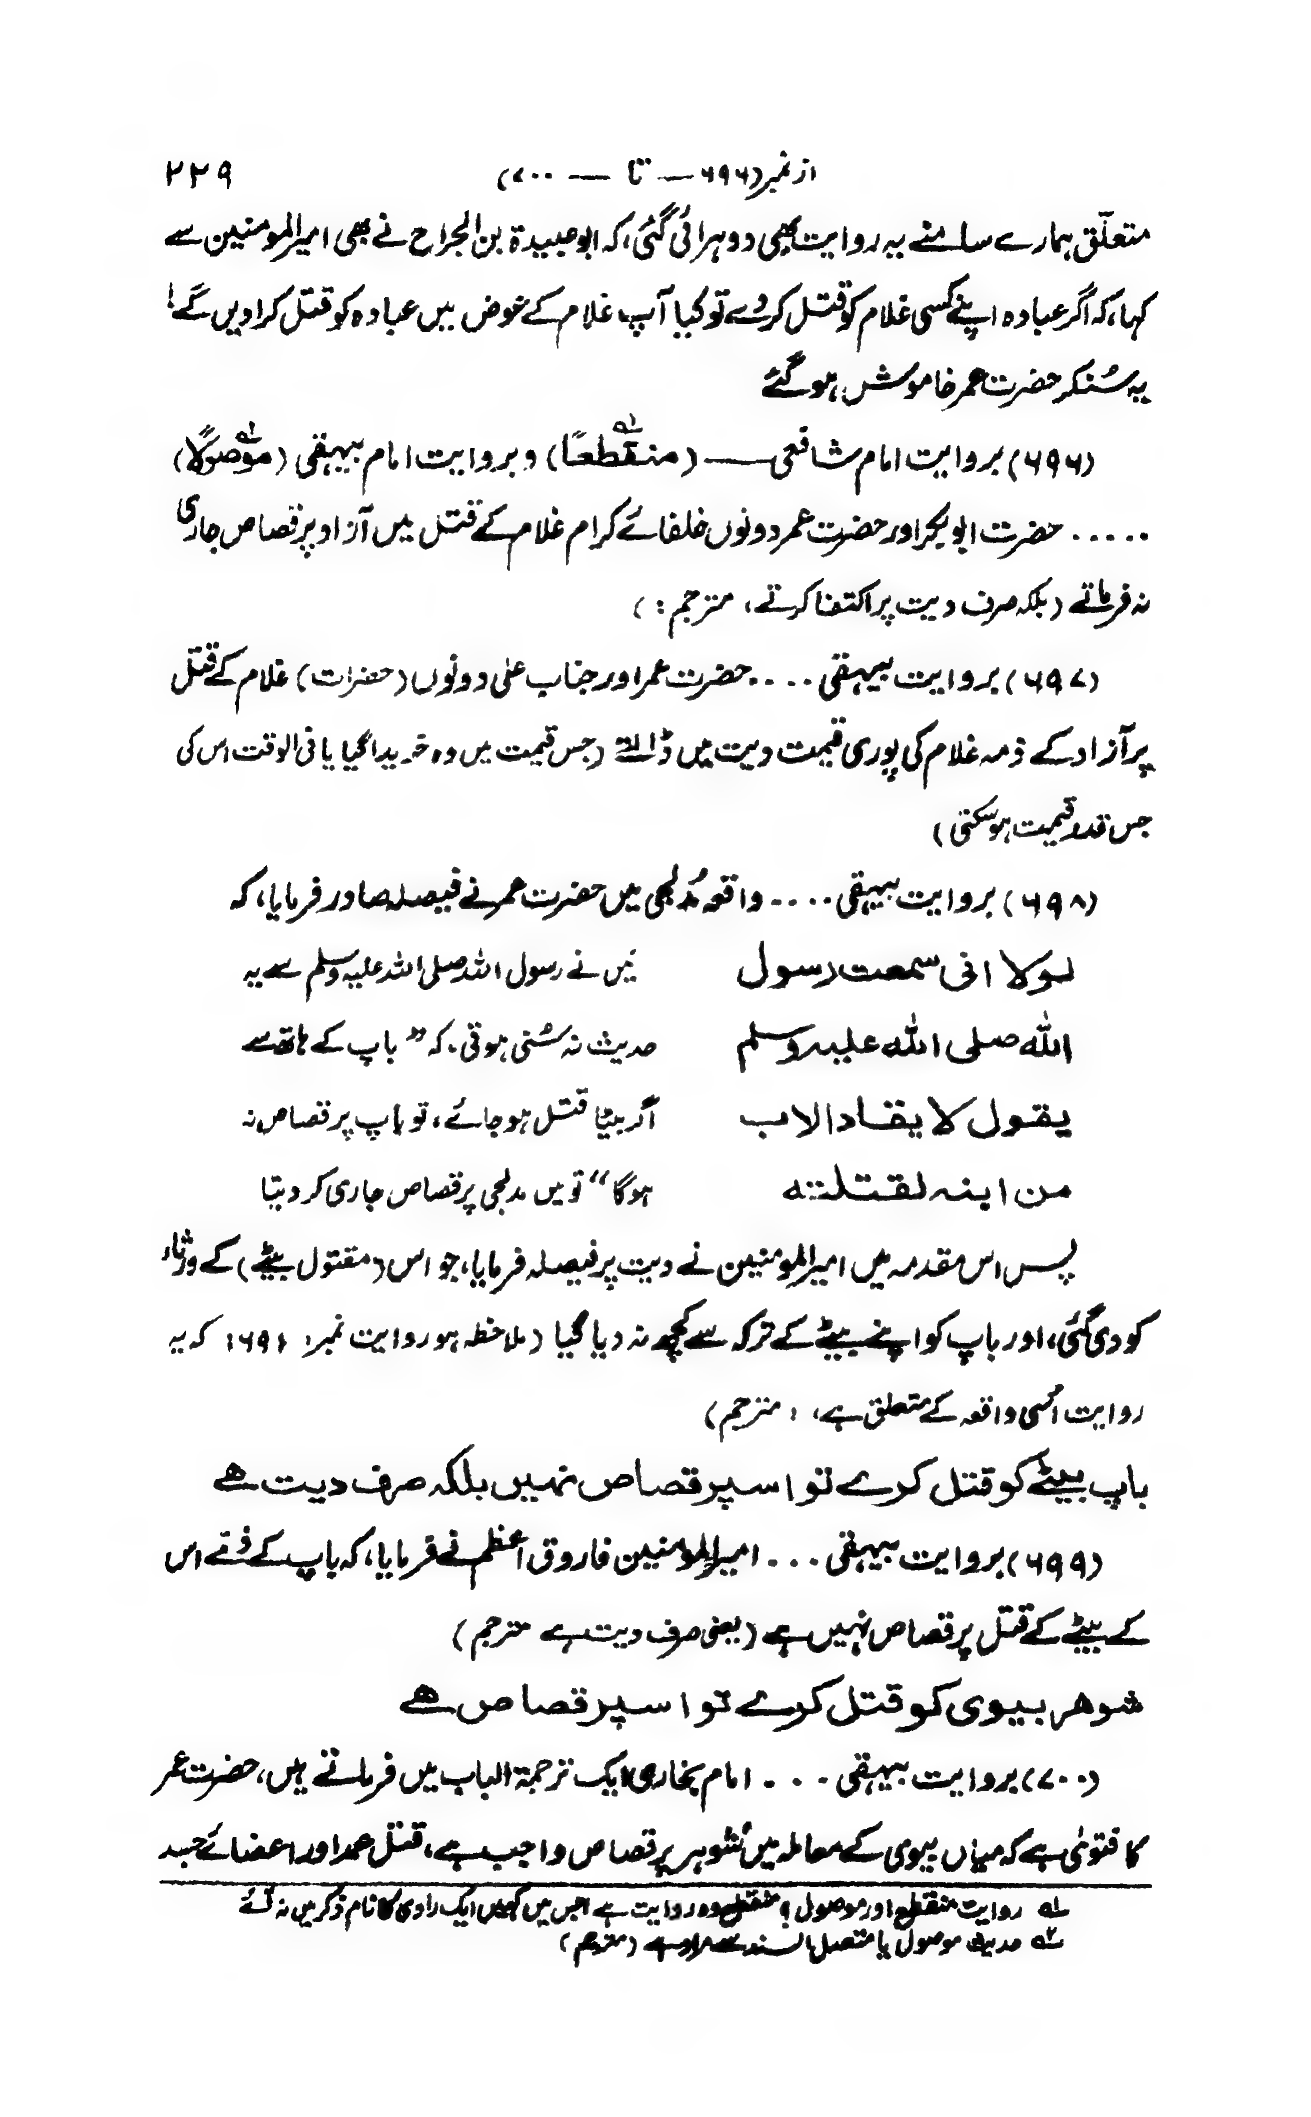 از نمبر (۶۹۶ — تا — ۷۰۰) ۲۲۹
متعلّق ہمارے سامنے یہ روایت بھی دوہرائی گئی، کہ ابو عبیدۃ بن الجراح نے بھی امیرالمومنین سے
کہا، کہ اگر عبادہ اپنے کسی غلام کو قتل کر دے تو کیا آپ، غلام کے عوض میں عبادہ کو قتل کرا دیں گے!
یہ سُنکر حضرت عمر خاموش ہو گئے
(۶۹۶) بروایت امام شافعی —— (منقطعاً)۱؎ و بروایت امام بیہقی (موصولاً)۲؎
..... حضرت ابوبکر اور حضرت عمر دونوں خلفائے کرام غلام کے قتل میں آزاد پر قصاص جاری
نہ فرماتے (بلکہ صرف دیت پر اکتفا کرتے، مترجم:)
(۶۹۷) بروایت بیہقی .... حضرت عمر اور جناب علی دونوں (حضرات) غلام کے قتل
پر آزاد کے ذمہ غلام کی پوری قیمت دیت میں ڈالتے (جس قیمت میں وہ خریدا گیا یا فی الوقت اس کی
جس قدر قیمت ہو سکتی)
(۶۹۸) بروایت بیہقی .... واقعہ مُدلجی میں حضرت عمر نے فیصلہ صادر فرمایا، کہ
لولا انی سمعت رسول میں نے رسول اللہ صلی اللہ علیہ وسلم سے یہ
اللہ صلی اللہ علیہ وسلم حدیث نہ سُنی ہوتی، کہ ”باپ کے ہاتھ سے
یقول لا یقاد الاب اگر بیٹا قتل ہو جائے، تو باپ پر قصاص نہ
من ابنہ لقتلتہ ہو گا“ تو میں مدلجی پر قصاص جاری کر دیتا
پس اس مقدمہ میں امیرالمومنین نے دیت پر فیصلہ فرمایا، جو اس (مقتول بیٹے) کے ورثاء
کو دی گئی، اور باپ کو اپنے بیٹے کے ترکہ سے کچھ نہ دیا گیا (ملاحظہ ہو روایت نمبر: ۶۹۱: کہ یہ
روایت اُسی واقعہ کے متعلق ہے، : مترجم)
باپ بیٹے کو قتل کرے تو اسپر قصاص نہیں بلکہ صرف دیت ہے
(۶۹۹) بروایت بیہقی ... امیرالمومنین فاروق اعظم نے فرمایا، کہ باپ کے ذمّے اس
کے بیٹے کے قتل پر قصاص نہیں ہے (یعنی صرف دیت ہے مترجم)
شوہر بیوی کو قتل کرے تو اسپر قصاص ہے
(۷۰۰) بروایت بیہقی ... امام بخاری ایک ترجمۃ الباب میں فرماتے ہیں، حضرت عمر
کا فتویٰ ہے کہ میاں بیوی کے معاملہ میں شوہر پر قصاص واجب ہے، قتل عمد اور اعضائے جسد
۱؎ روایت منقطع اور موصول؟ منقطع وہ روایت ہے جس میں کہیں ایک راوی کا نام ذکر میں نہ آئے
۲؎ حدیث موصول یا متصل السند سے مراد ہے (مترجم)